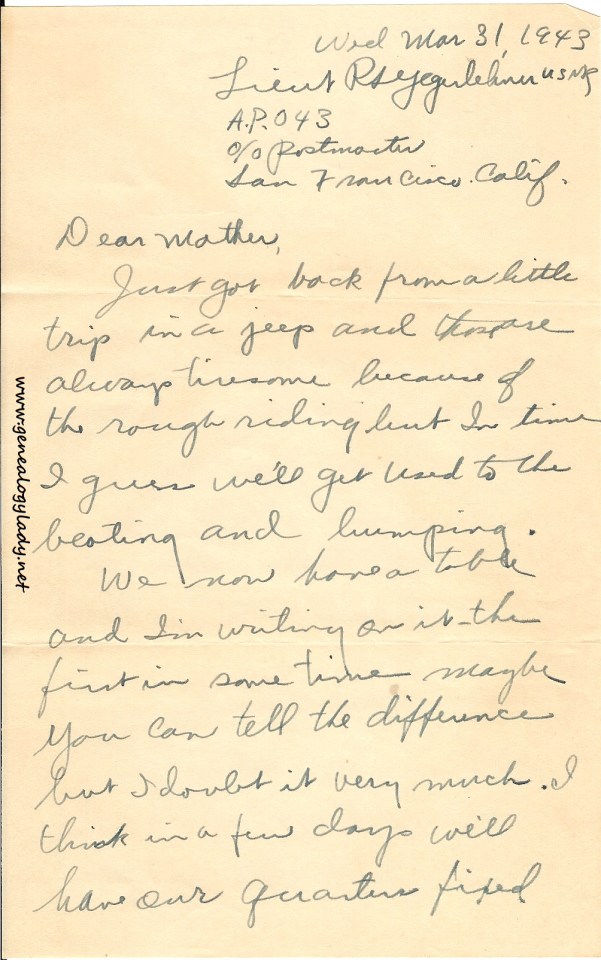 Wed Mar 31, 1943
Lieut R S Yegerlehner USMR
A.P.O 43
c/o Postmaster
San Francisco. Calif.
Dear Mother,
Just got back from a little
trip in a jeep and those are
always tiresome because of
the rough riding but In time
I guess we'll get used to the
beating and bumping.
We now have a table
and I'm writing on it - the
first in some time maybe
you can tell the difference
but I doubt it very much. I
think in a few days we'll
have our quarters fixed
www.genealogylady.net